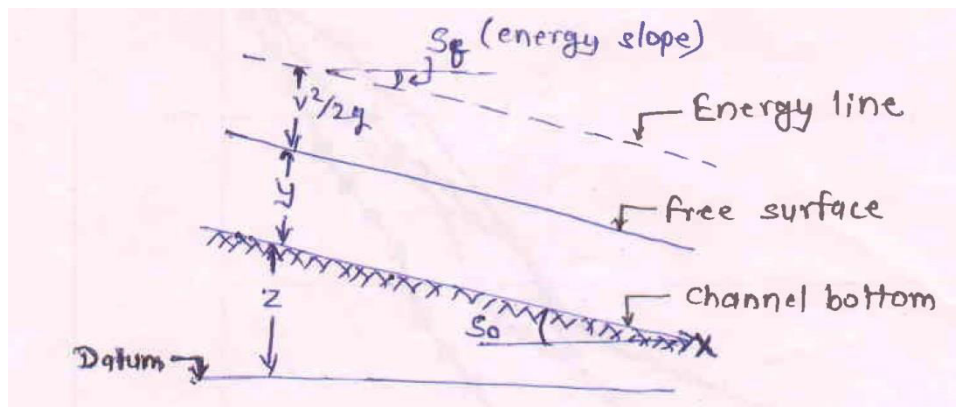 Sf (energy slope)
v²/2g
Energy line
y
free surface
Z
Channel bottom
So
Datum